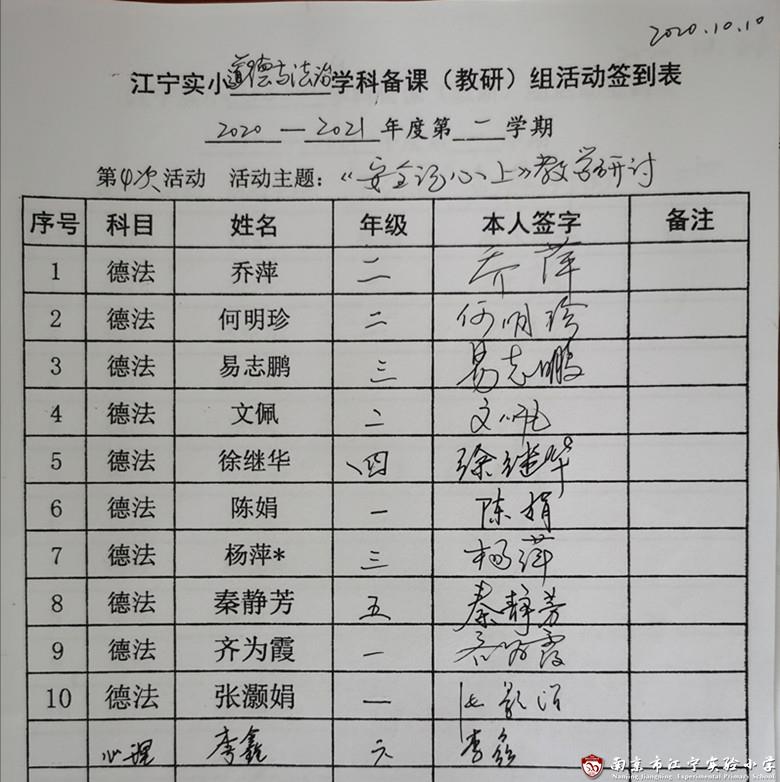 2020.10.10
江宁实小道德与法治学科备课（教研）组活动签到表
2020—2021年度第二学期
第4次活动 活动主题：《安全记心上》教学研讨
序号 科目 姓名 年级 本人签字 备注
1 德法 乔萍 二 乔萍
2 德法 何明珍 二 何明珍
3 德法 易志鹏 三 易志鹏
4 德法 文佩 二 文佩
5 德法 徐继华 四 徐继华
6 德法 陈娟 一 陈娟
7 德法 杨萍* 三 杨萍
8 德法 秦静芳 五 秦静芳
9 德法 齐为霞 一 齐为霞
10 德法 张灏娟 一
心理 李鑫 六 李鑫
南京市江宁实验小学
Nanjing Jiangning Experimental Primary School